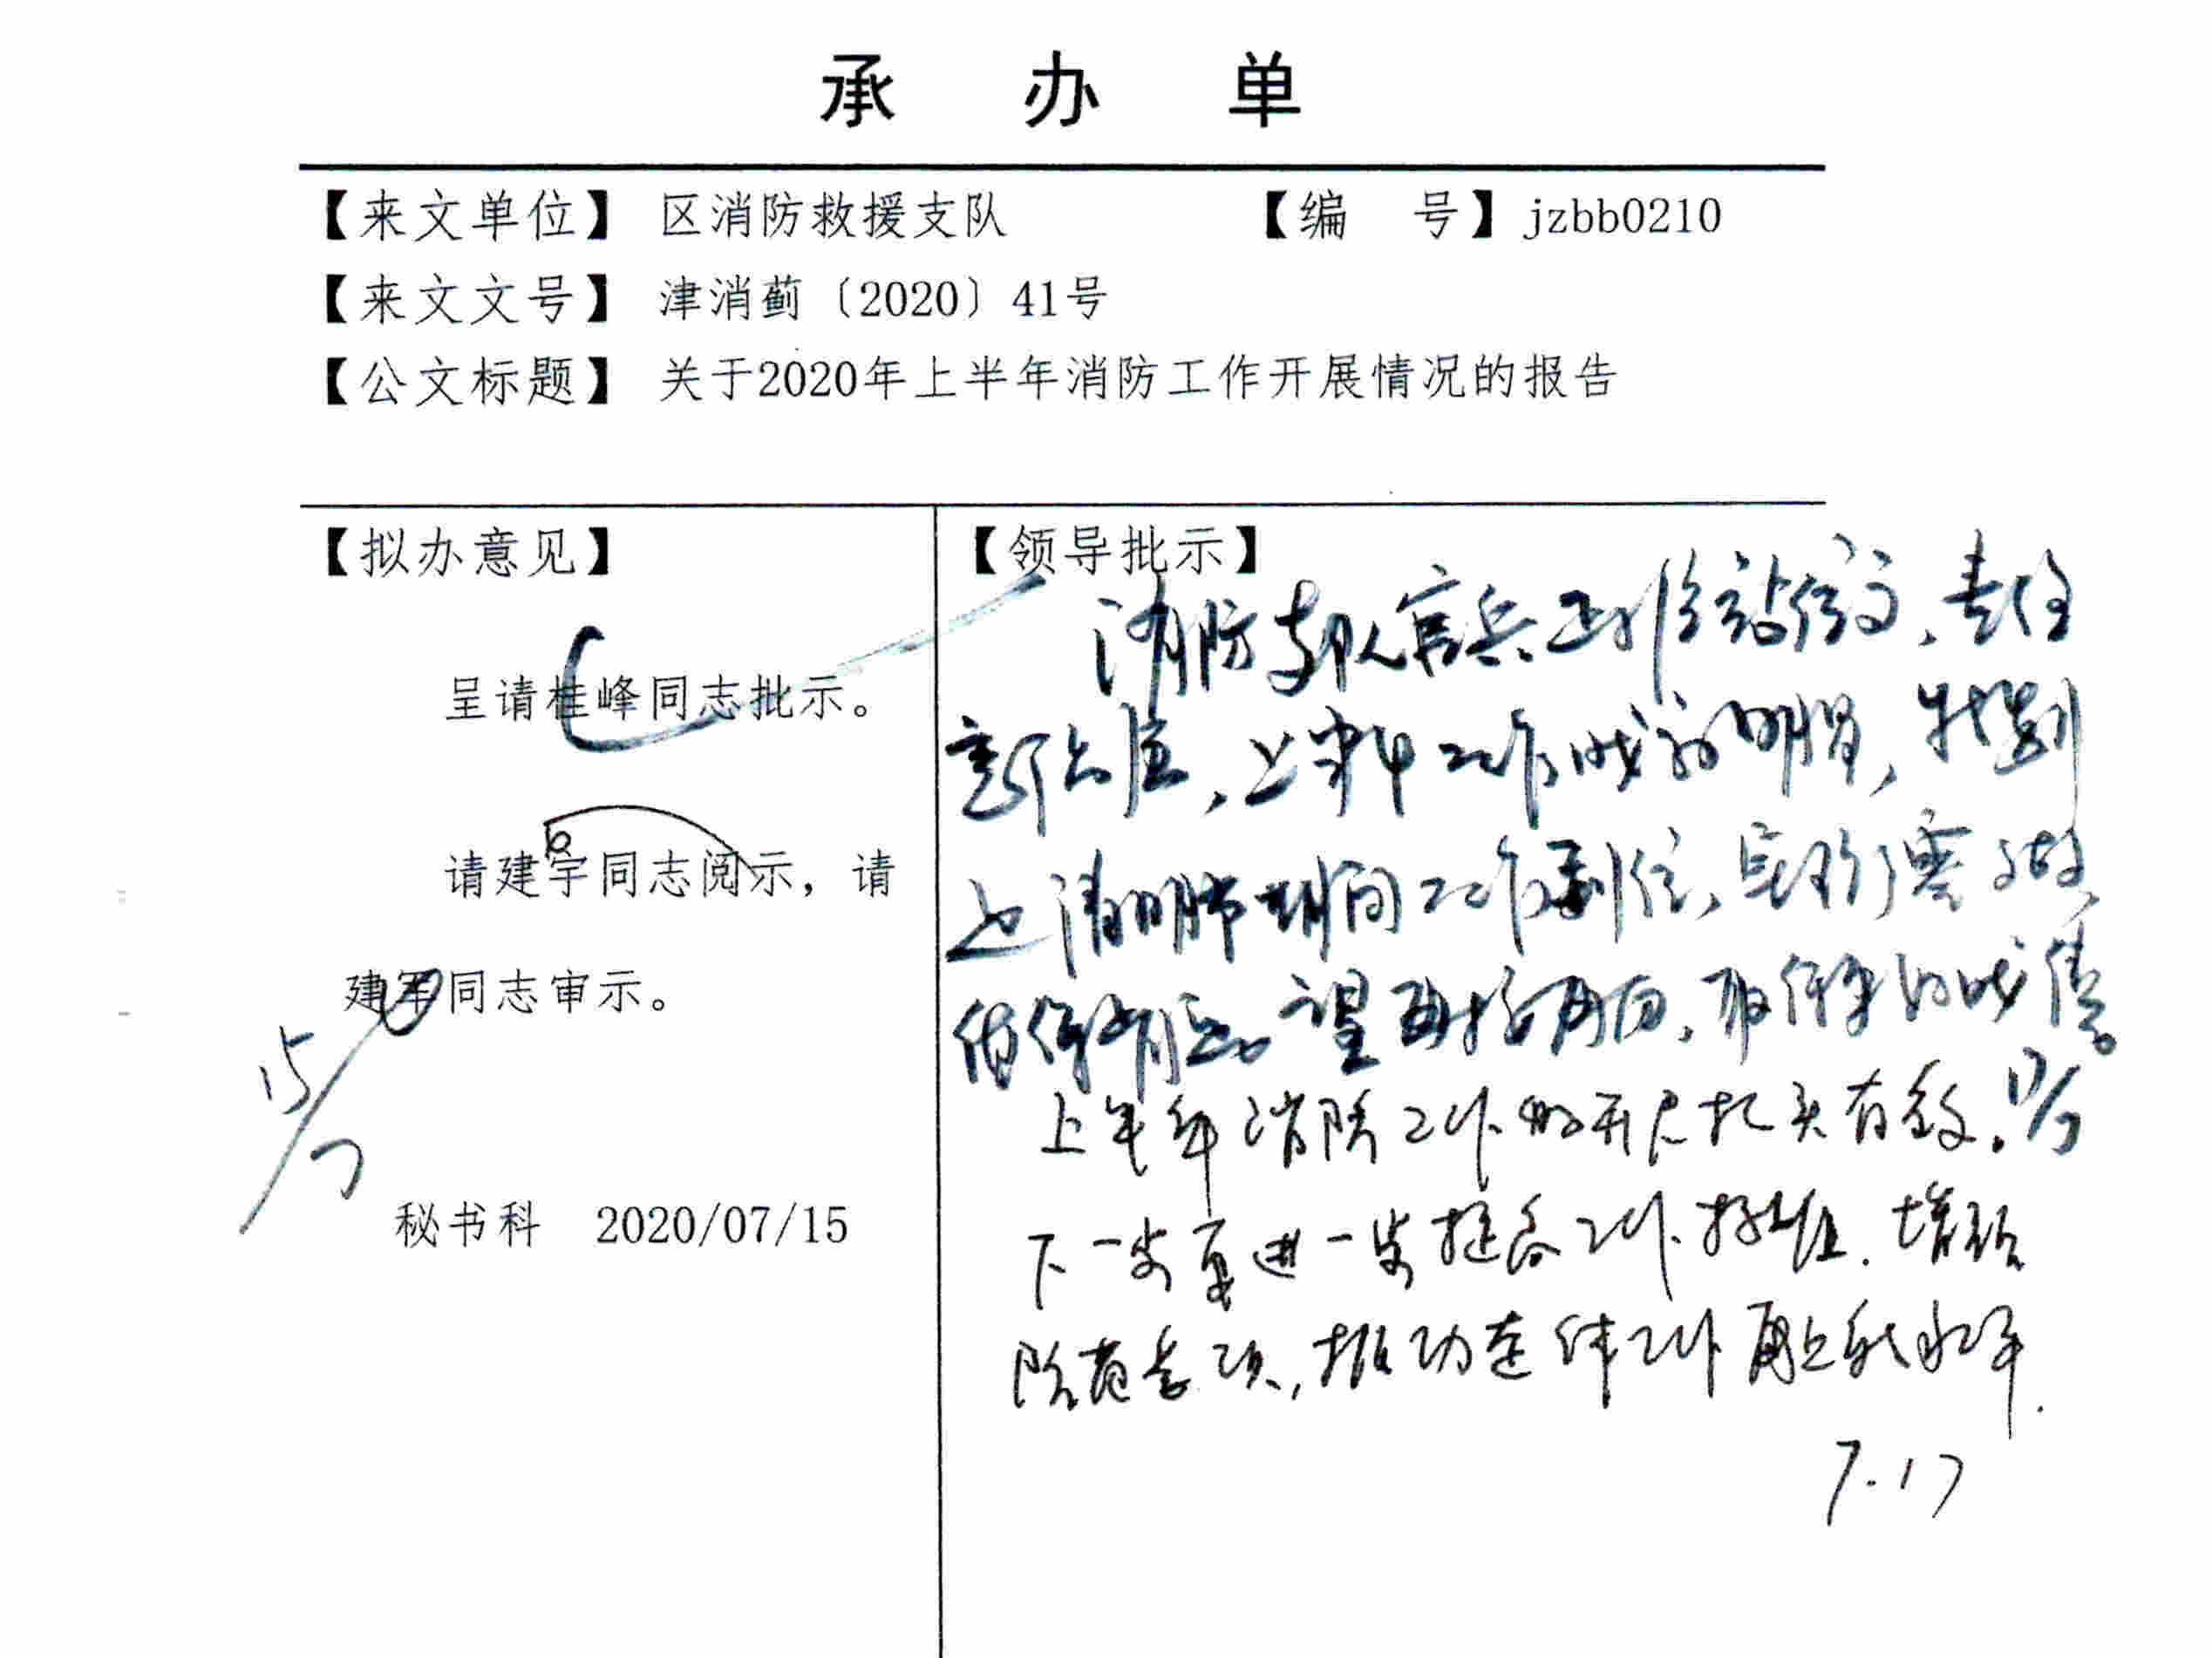 承办单
【来文单位】 区消防救援支队 【编 号】jzbb0210
【来文文号】 津消蓟〔2020〕41号
【公文标题】 关于2020年上半年消防工作开展情况的报告
【拟办意见】
呈请桂峰同志批示。
请建宇同志阅示，请
建军同志审示。
15/7
秘书科 2020/07/15
【领导批示】
消防支队官兵政治站位高、责任
上半年工作成效明显，特别
是清明节期间工作到位，
望再接再厉，取得更的成绩。
17/7
上半年消防工作的开展扎实有效。
下一步要进一步提高工作标准、增强
防范意识，推动整体工作再上新水平.
7.17